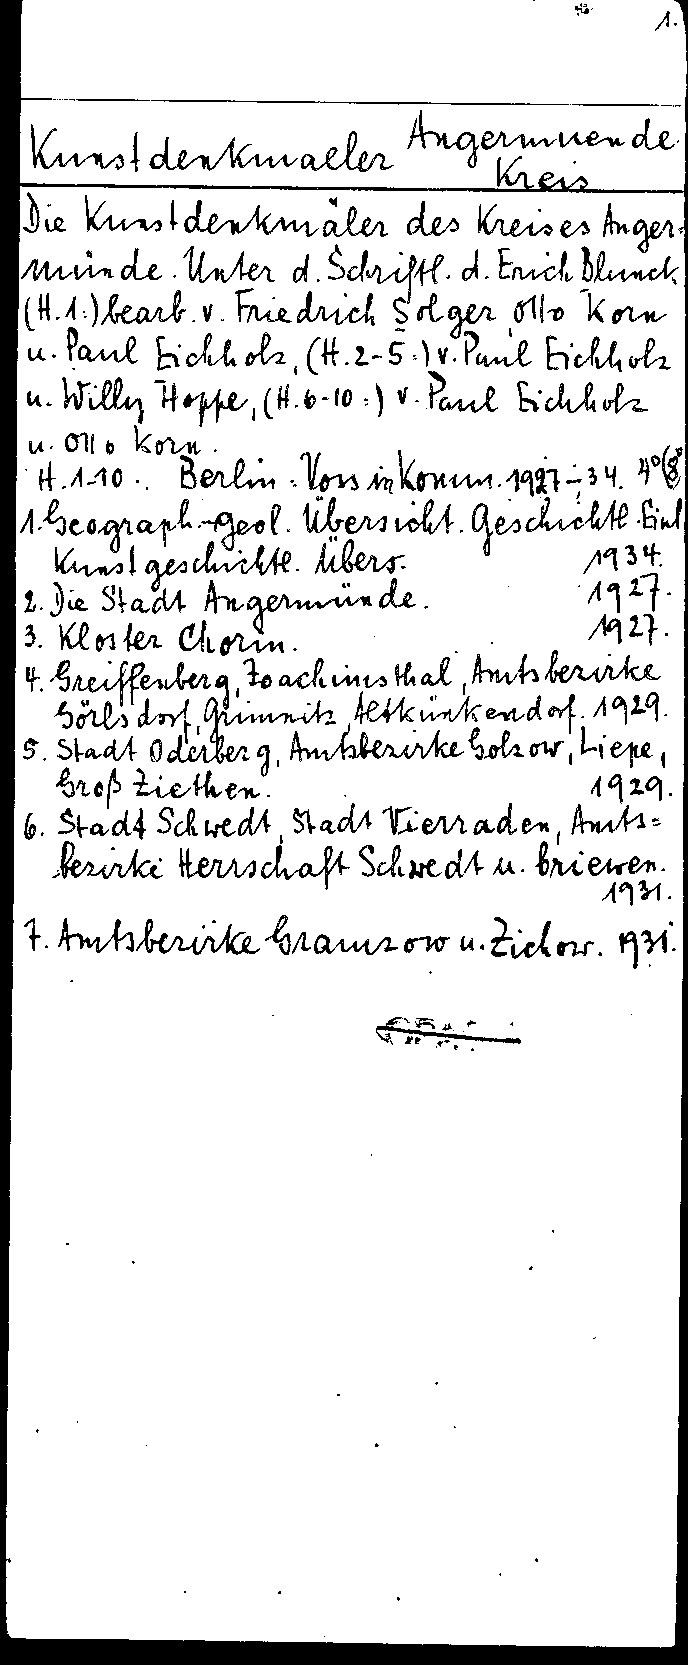 1.
Kunstdenkmaeler Angermuende
Kreis
Die Kunstdenkmäler des Kreises Anger=
münde. Unter d. Schriftl. d. Erich Blunck
(H.1:) bearb. v. Friedrich Solger, Otto Korn
u. Paul Eichholz, (H.2-5:) v. Paul Eichholz
u. Willy Hoppe, (H.6-10:) v. Paul Eichholz
u. Otto Korn.
H.1-10. Berlin: Voss in Komm. 1927-34. 4°(8°
1. Geograph.-geol. Übersicht. Geschichtl. Einl.
Kunstgeschichtl. Übers. 1934.
2. Die Stadt Angermünde. 1927.
3. Kloster Chorin. 1927.
4. Greiffenberg, Joachimsthal, Amtsbezirke
Görlsdorf, Grimnitz, Altkünkendorf. 1929.
5. Stadt Oderberg, Amtsbezirke Golzow, Liepe,
Groß Ziethen. 1929.
6. Stadt Schwedt, Stadt Vierraden, Amts=
bezirke Herrschaft Schwedt u. Criewen.
1931.
7. Amtsbezirke Gramzow u. Zichow. 1931.